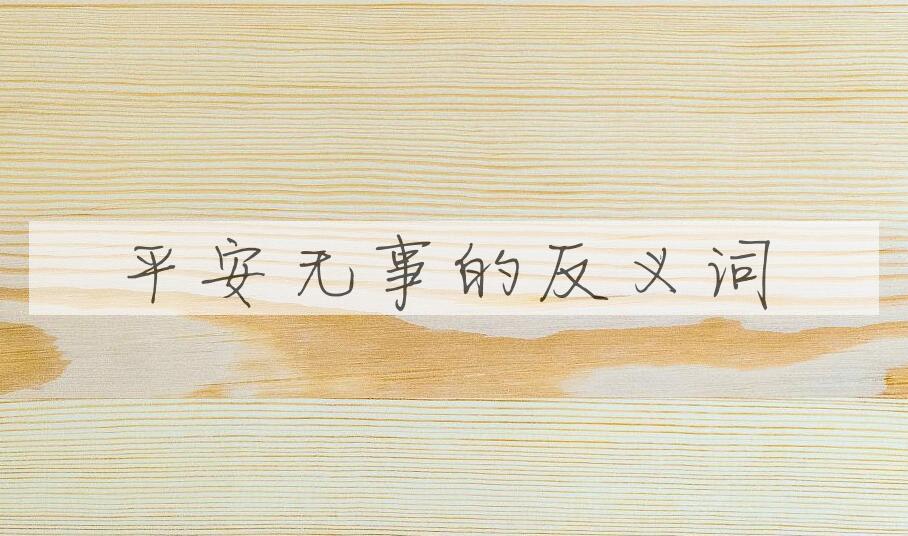 平安无事的反义词